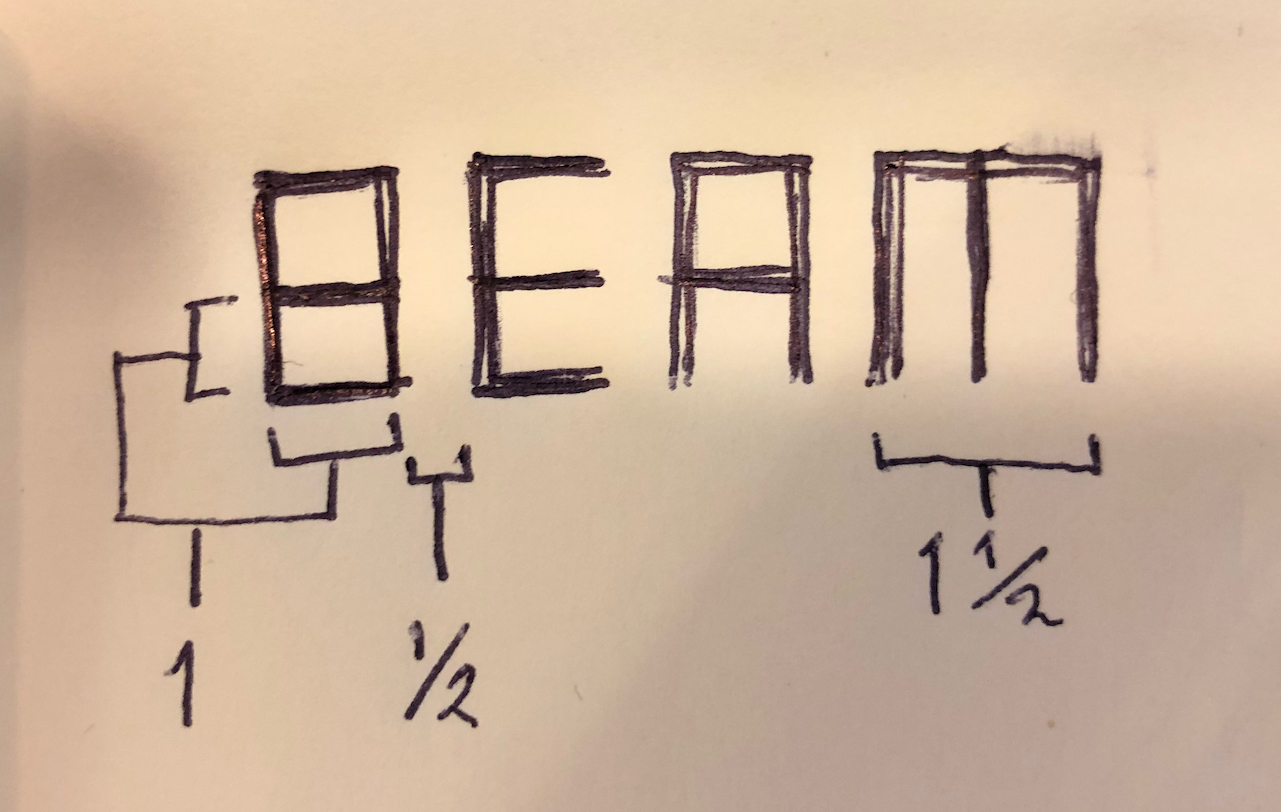 BEAM
1 ½ 1 ½